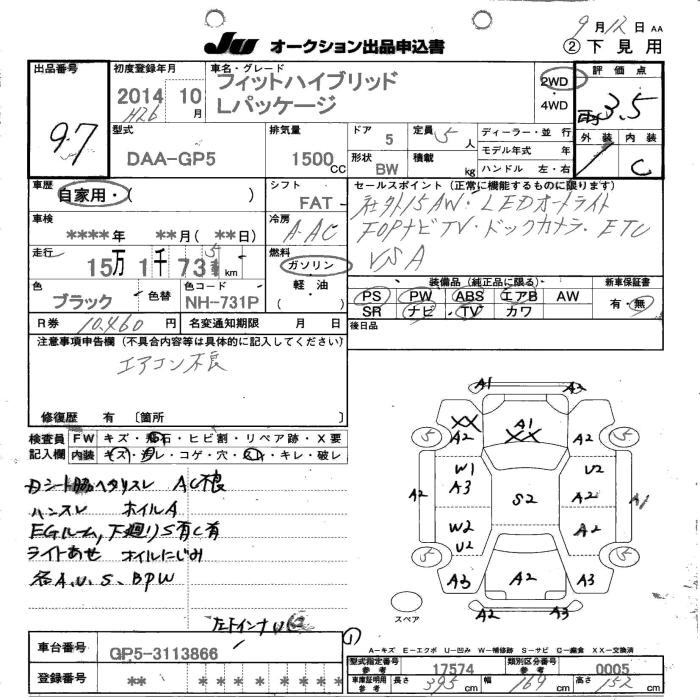 9月12日 AA
JU オークション出品申込書
② 下見用
出品番号
97
初度登録年月
2014 10月
H26
車名・グレード
フィットハイブリッド
Lパッケージ
2WD
・
4WD
評価点
3.5
外装 内装
C
型式
DAA-GP5
排気量
1500cc
ドア 5
形状 BW
定員 5人
積載 kg
ディーラー・並行
モデル年式 年
ハンドル 左・右
車歴
自家用・( )
シフト
FAT
セールスポイント(正常に機能するものに限ります)
社外15AW・LEDオートライト
FOPナビTV・ドックカメラ・ETC
VSA
車検
****年 **月(**日)
冷房
A.AC
走行
15万1千731km
5
燃料
ガソリン
軽油
( )
色
ブラック
色替
色コード
NH-731P
装備品(純正品に限る)
新車保証書
PS PW ABS エアB AW
SR ナビ TV カワ
有・無
R券 10,460円
名変通知期限 月 日
後日品
注意事項申告欄(不具合内容等は具体的に記入してください)
エアコン不良
修復歴 有 〔箇所 〕
検査員
記入欄
FW キズ・飛石・ヒビ割・リペア跡・X要
内装 キズ・汚レ・コゲ・穴・スレ・キレ・破レ
Dシート脇ヘタリスレ AC不良
ハンスレ ホイルA
EGルーム,下廻りS有C有
ライトあせ ホイルにじみ
各A.U.S.BPW
A1
A2
XX A2
A1
XX
A2
5
5
W1
A3
U2
A2
A2
S2
A1
W2
U2
A2
5
5
A3
A2
A3
A2
A2
スペア
車台番号
GP5-3113866
登録番号
** * * * * * * *
①
A-キズ E-エクボ U-凹み W-補修跡 S-サビ C-腐食 XX-交換済
型式指定番号
参考
17574
類別区分番号
参考
0005
車庫証明用
参考
長さ 395cm
幅 169cm
高さ 152cm